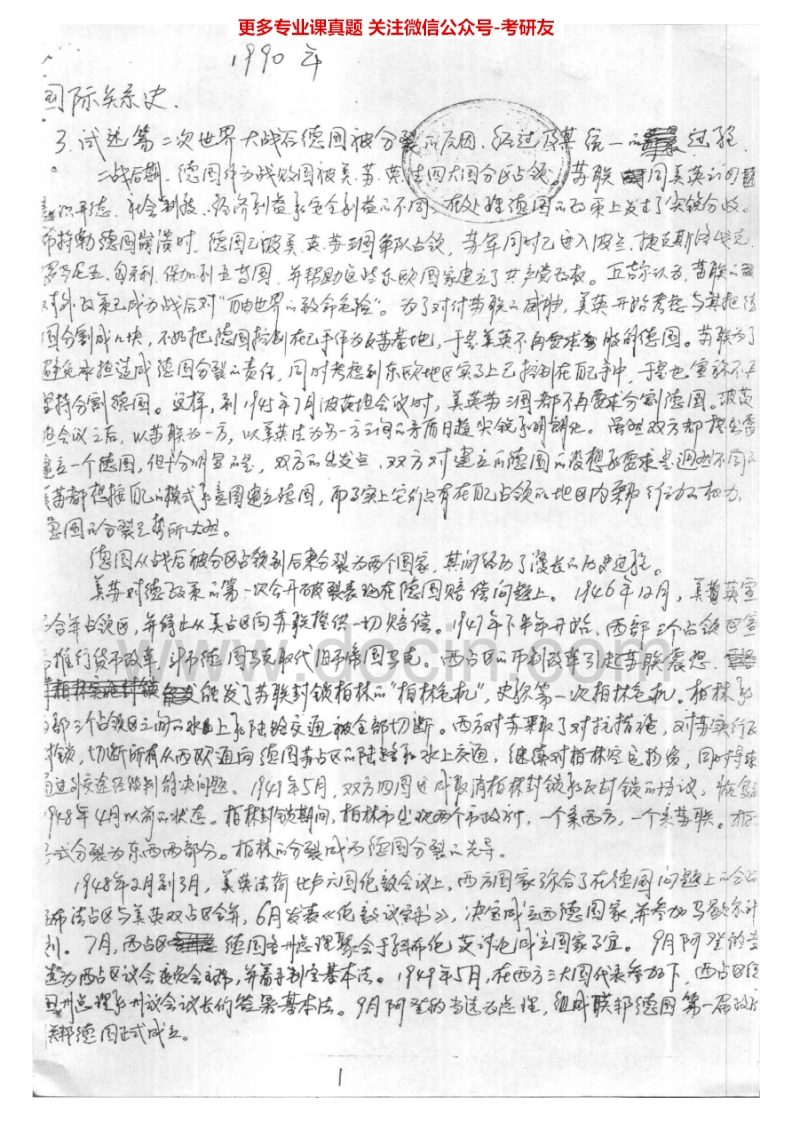 更多专业课真题 关注微信公众号-考研友
1990年
国际关系史.
3.试述第二次世界大战后德国被分裂的原因、经过及其统一的过程.
二战后期,德国作为战败国被美、苏、英、法四大国分区占领。苏联同美英之间
意识形态、社会制度、经济利益和安全利益的不同,在处理德国的政策上发生了尖锐分歧。
希特勒德国崩溃时,德国已被美、英、苏三国军队占领,苏军同时已进入波兰、捷克斯洛伐克、
罗马尼亚、匈牙利、保加利亚等国,并帮助这些东欧国家建立了共产党政权。丘吉尔认为,苏联的
对外政策已成为战后对“自由世界的致命危险”。为了对付苏联的威胁,美英开始考虑与其把德
国分割成几块,不如把德国控制在己手作为反苏基地,于是美英不再要求肢解德国。苏联为了
避免承担造成德国分裂的责任,同时考虑到东欧地区实际上已控制在自己手中,于是也宣称不
坚持分割德国。这样,到1945年7月波茨坦会议时,美英苏三国都不再要求分割德国。波茨
坦会议之后,以苏联为一方,以美英法为另一方之间的矛盾日趋尖锐和明朗化。虽然双方都提出要
建立一个德国,但十分明显的是,双方的出发点,双方对建立的德国的设想和要求是迥然不同的
美苏都想按自己的模式和意图建立德国,而事实上它们只有在自己占领的地区内采取行动的权力,
德国的分裂已势所必然。
德国从战后被分区占领到后来分裂为两个国家,其间经历了漫长的历史过程。
美苏对德政策的第一次公开破裂表现在德国赔偿问题上。1946年12月,美首英宣
布合并占领区,并停止从美占区向苏联提供一切赔偿。1947年下半年开始,西部三个占领区宣
布推行货币改革,以B德国马克取代旧帝国马克。西占区的币制改革引起苏联震怒,
触发了苏联封锁柏林的“柏林危机”,史称第一次柏林危机。柏林和
西部三个占领区之间的水上和陆路交通被全部切断。西方对苏采取了对抗措施,对苏实行反
封锁,切断所有从西欧通向德国苏占区的陆路和水上交通,继续对柏林空运物资,同时寻求
通过外交途径谈判解决问题。1949年5月,双方四国达成取消柏林封锁和反封锁的协议,恢复
1948年4月以前的状态。柏林封锁期间,柏林市出现两个市政府,一个亲西方,一个亲苏联。柏林
正式分裂为东西两部分。柏林的分裂成为德国分裂的先导。
1948年2月到3月,美英法荷比卢六国伦敦会议上,西方国家弥合了在德国问题上的分歧
宣布法占区与美英双占区合并,6月发表《伦敦议定书》,决定成立西德国家,并参加马歇尔计
划。7月,西占区德国各州总理聚会于科布伦茨讨论成立国家事宜。9月阿登纳当
选为西占区议会委员会主席,并着手制定基本法。1949年5月,在西方三大国代表参加下,西占区德
国州总理和州议会议长们签署基本法。9月阿登纳当选为总理,组成联邦德国第一届政府
联邦德国正式成立。
1
www.docin.com